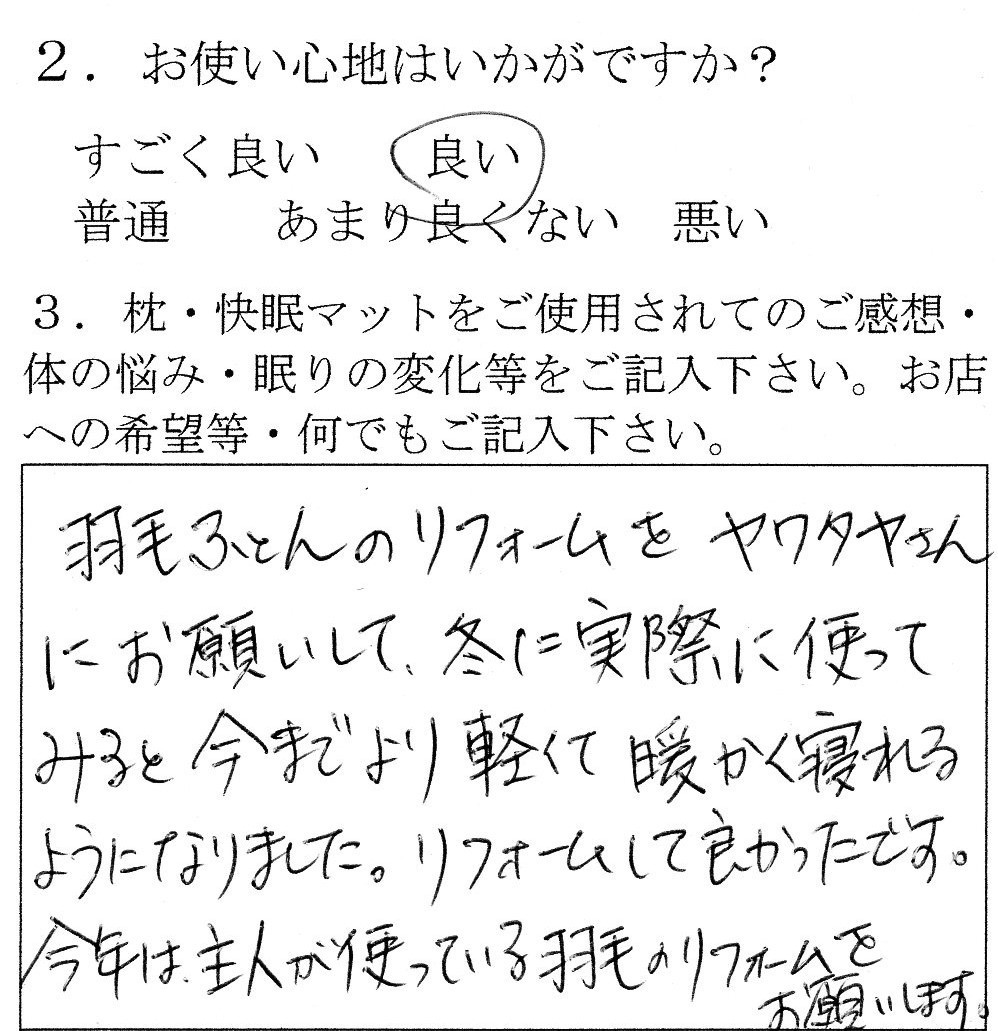 ２．お使い心地はいかがですか？
すごく良い　良い
普通　あまり良くない　悪い
３．枕・快眠マットをご使用されてのご感想・
体の悩み・眠りの変化等をご記入下さい。お店
への希望等・何でもご記入下さい。
羽毛ふとんのリフォームを ヤワタヤさん
にお願いして、冬に実際に使って
みると今までより軽くて暖かく寝れる
ようになりました。リフォームして良かったです。
今年は、主人が使っている羽毛のリフォームを
お願いします。